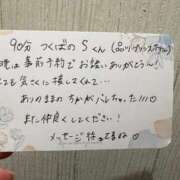 90分 つくばの Sくん (品川プリンスホテル)
時は事前予約でお誘いありがとう〜!
とても気さくに接してくれて…
ありのままの ちかが バレちゃた!!!
また仲良くしてください!
メッセージ 待ってますね